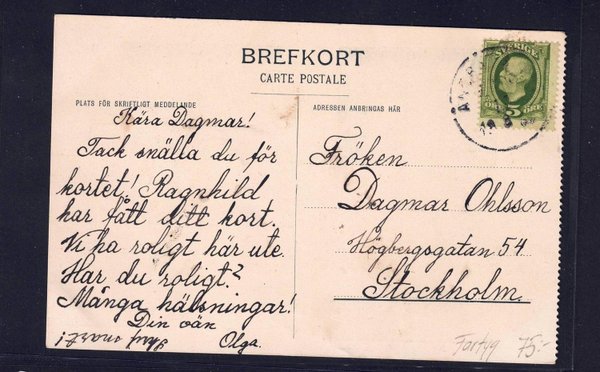 BREFKORT
CARTE POSTALE
PLATS FÖR SKRIFTLIGT MEDDELANDE
Kära Dagmar!
Tack snälla du för
kortet! Ragnhild
har fått ditt kort.
Vi ha roligt här ute.
Har du roligt?
Många hälsningar!
Din vän
Olga.
ADRESSEN ANBRINGAS HÄR
Fröken
Dagmar Ohlsson
Högbergsgatan 54
Stockholm.
SVERIGE
5
ÖRE ÖRE
Fartyg 75:-